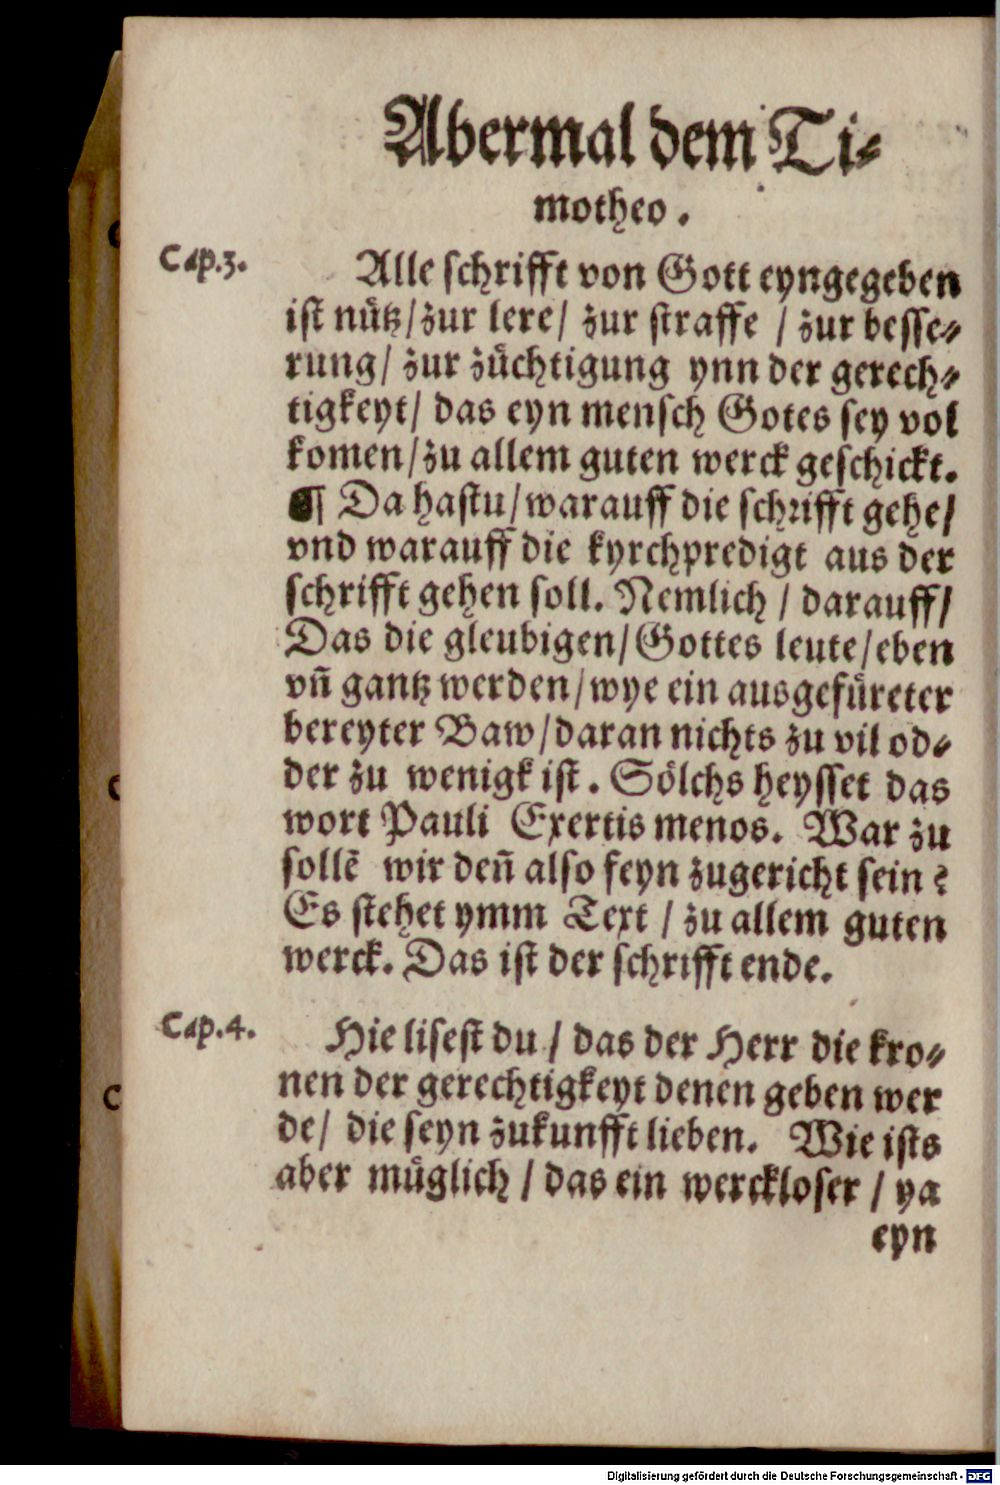 Abermal dem Ti⸗
motheo.
Cap.3.
Alle schrifft von Gott eyngegeben
ist nütz/zur lere/ zur straffe / zur besse⸗
rung/ zur züchtigung ynn der gerech⸗
tigkeyt/ das eyn mensch Gotes sey vol
komen/zu allem guten werck geschickt.
¶ Da hastu/warauff die schrifft gehe/
vnd warauff die kyrchpredigt aus der
schrifft gehen soll. Nemlich / darauff/
Das die gleubigen/Gottes leute/eben
vñ gantz werden/wye ein ausgefüreter
bereyter Baw/daran nichts zu vil od⸗
der zu wenigk ist. Sölchs heysset das
wort Pauli Exertis menos. War zu
sollē wir deñ also feyn zugericht sein?
Es stehet ymm Text / zu allem guten
werck. Das ist der schrifft ende.
Cap.4.
Hie lisest du / das der Herr die kro⸗
nen der gerechtigkeyt denen geben wer
de/ die seyn zukunfft lieben. Wie ists
aber müglich / das ein werckloser / ya
eyn
Digitalisierung gefördert durch die Deutsche Forschungsgemeinschaft - DFG